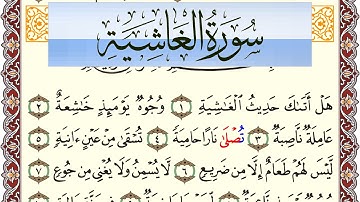 سُورَةُ الغَاشِيَةِ
هَلْ أَتَىٰكَ حَدِيثُ الْغَـٰشِيَةِ ١ وُجُوهٌ يَوْمَئِذٍ خَـٰشِعَةٌ ٢
عَامِلَةٌ نَّاصِبَةٌ ٣ تُصْلَىٰ نَارًا حَامِيَةً ٤ تُسْقَىٰ مِنْ عَيْنٍ ءَانِيَةٍ ٥
لَّيْسَ لَهُمْ طَعَامٌ إِلَّا مِن ضَرِيعٍ ٦ لَّا يُسْمِنُ وَلَا يُغْنِى مِن جُوعٍ ٧